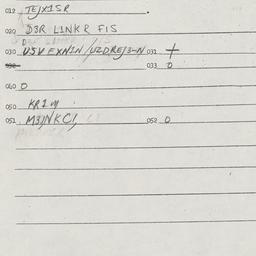 012 TEJX1SR
020 D3R L1NKR FIS
030 USV EXN1N/UZDREJ3-N 031 +
033 0
040 0
050 KR1M
051 M3JNKC1 052 0